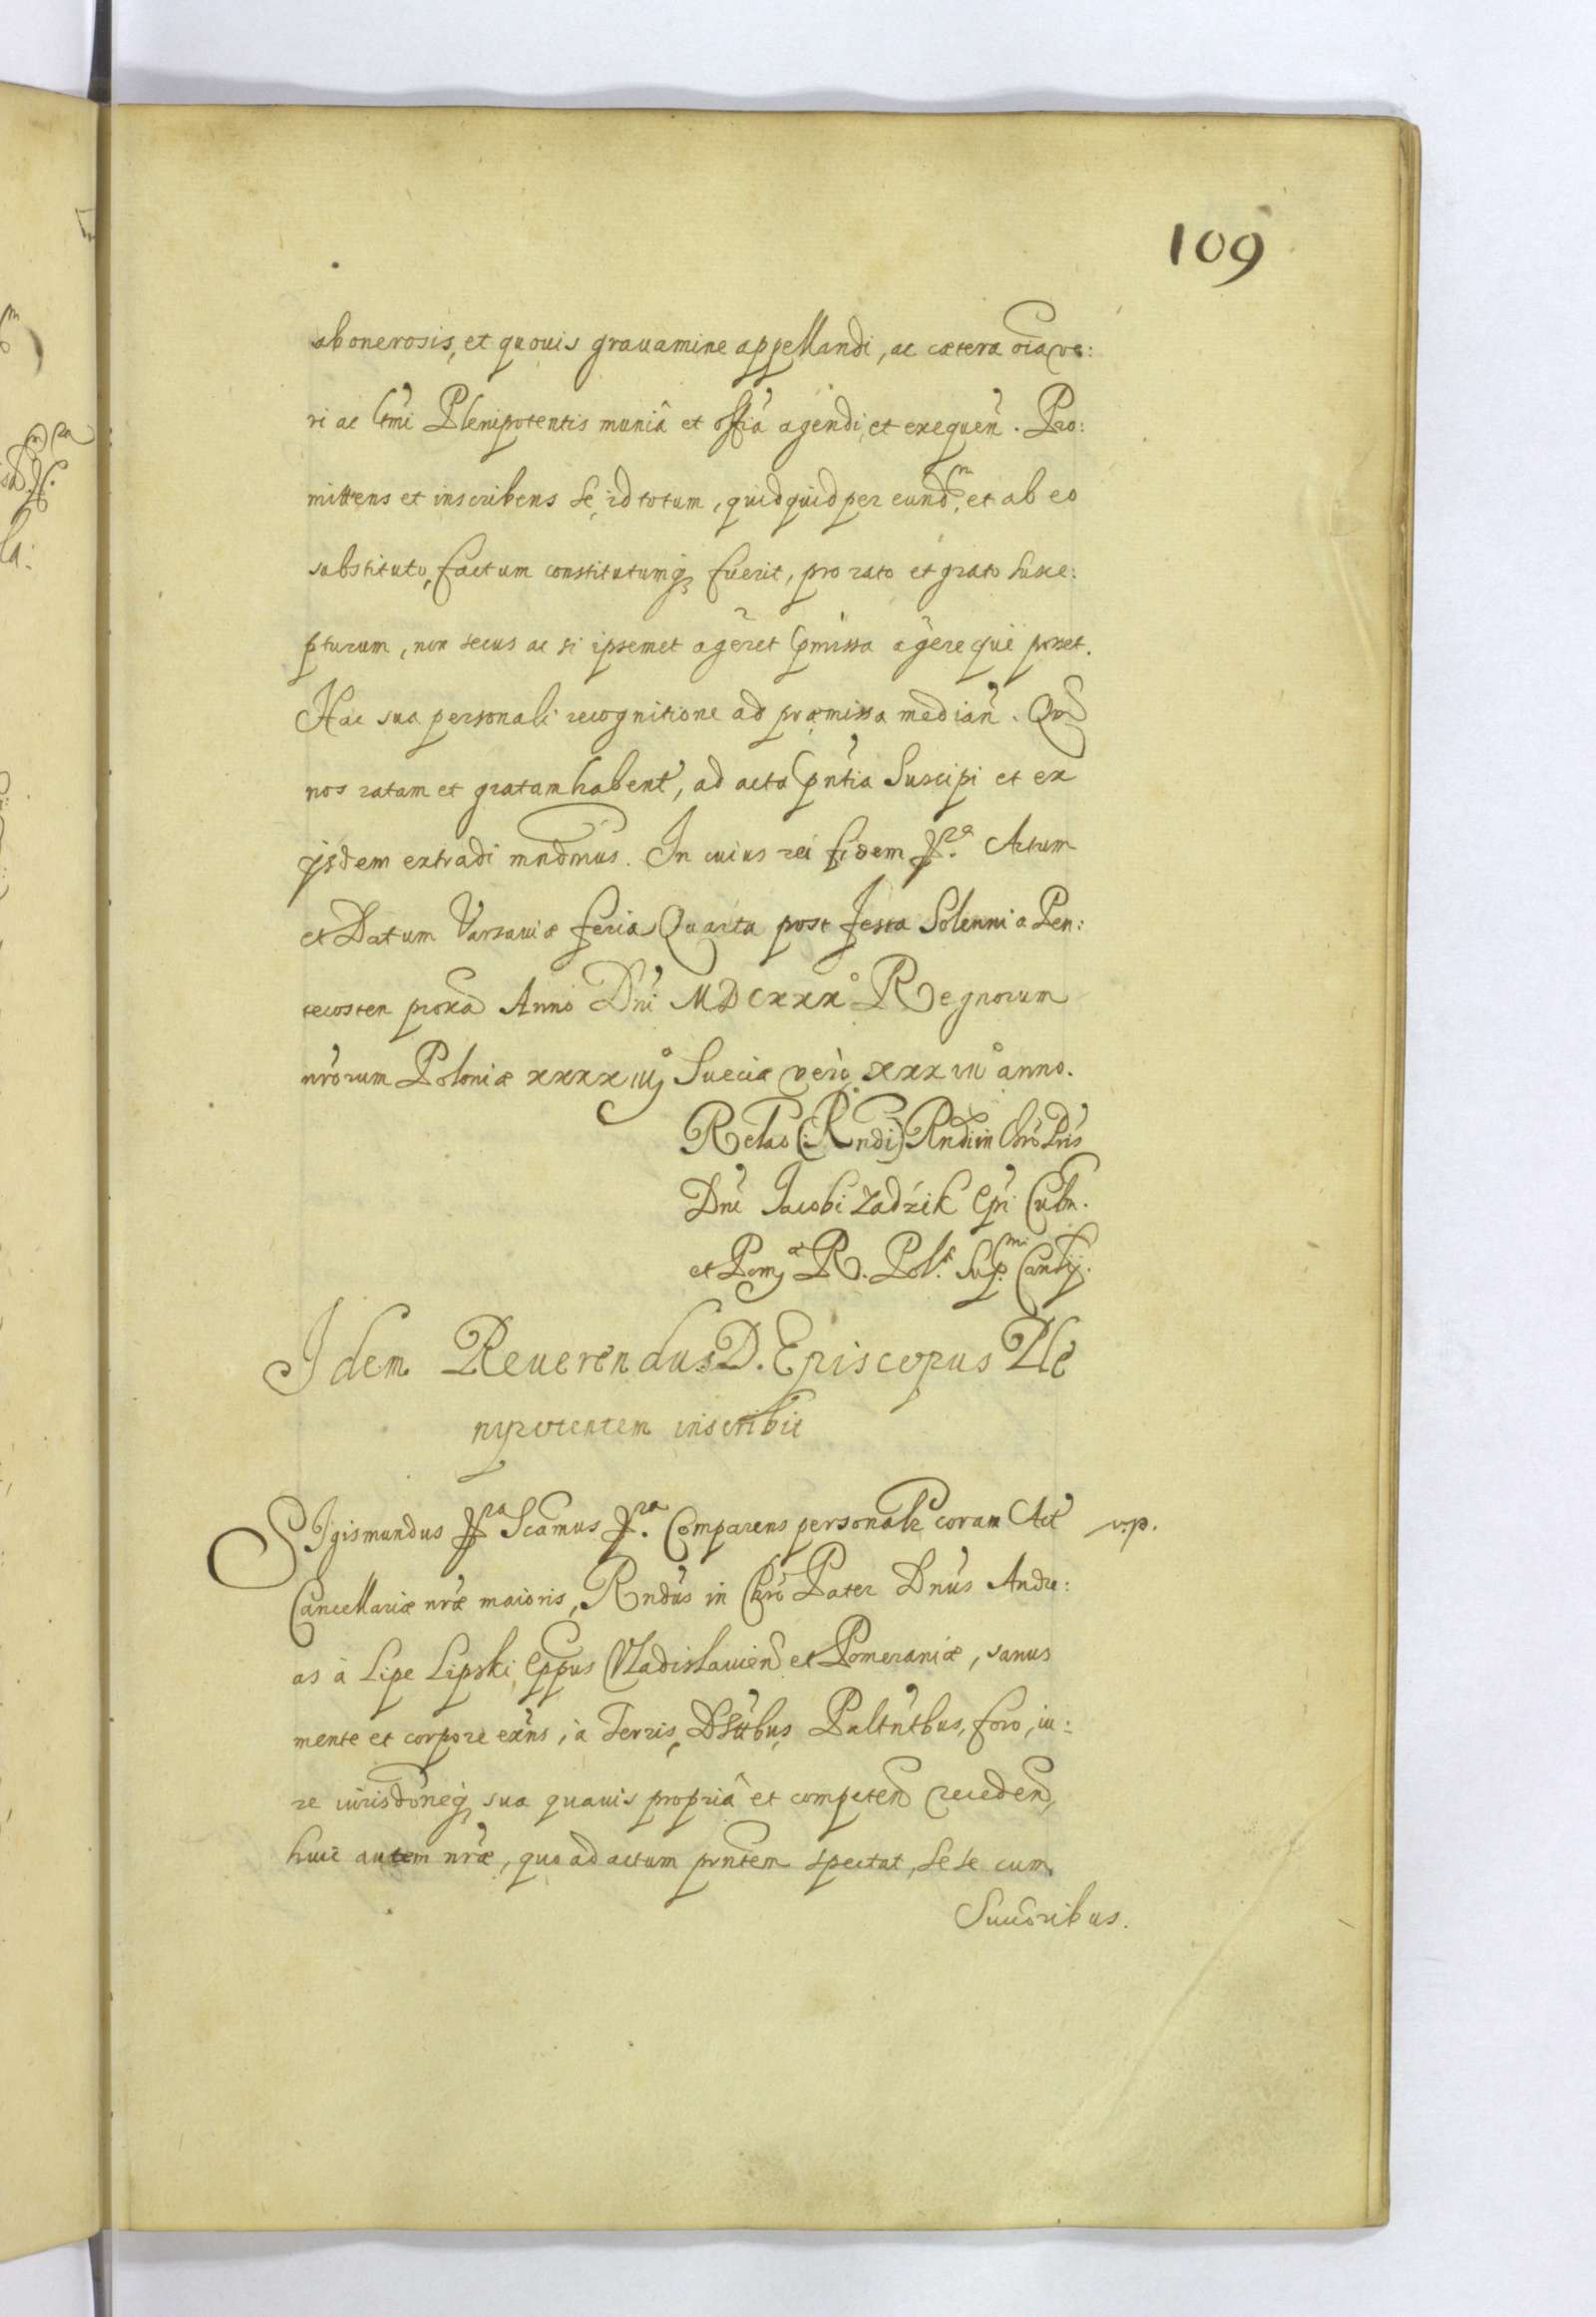 109
ab onerosis, et quouis grauamine appellandi, ac cætera oía ve:
ri ac ltmi Plenipotentis muniâ et offia agendi, et exequen̄. Pro:
mittens et inscribens se, id totum, quidquid per eundm, et ab eo
substituto, factum constitutumq̧ fuerit, pro rato et grato susce:
pturum, non secus ac si ipsemet ageret pmissa agere posset.
Hac sua personali recognitione ad præmissa median̄. Qd
nos ratam et gratam habent, ad acta pn̄tia Suscipi et ex
ijsdem extradi mndmus. In cuius rei fidem pra. Actum
et Datum Varsauiæ feria Quarta post festa Solennia Pen:
tecosten proxa Anno Dn̄i MDCXXX° Regnorum
nr̄orum Poloniæ xxxxiij° Sueciæ verò xxxvii° anno.
Relao (Rndi) Rndi in Chro Pris
Dn̄i Jacobi Zadźik Epi Culm.
et Pom: R. Pol. Supmi Canlrij.
Idem Reuerendus D. Episcopus Ple
nipotentem inscribit
Sigismundus pra Scamus pra. Comparens personalr coram Act v.p.
Cancellariæ nr̄æ maioris, Rndus in Chro Pater Dn̄us Andre:
as à Lipe Lipski, Eppus Vladislauien et Pomeraniæ, sanus
mente et corpore exn̄s, à Terris, Dsttbus, Paltn̄tbus, foro, iu:
re iurisdōneq̧ sua quauis propriâ et competen receden,
huic autem nr̄æ, quo ad actum pn̄tem spectat, se se cum
Succoribus.